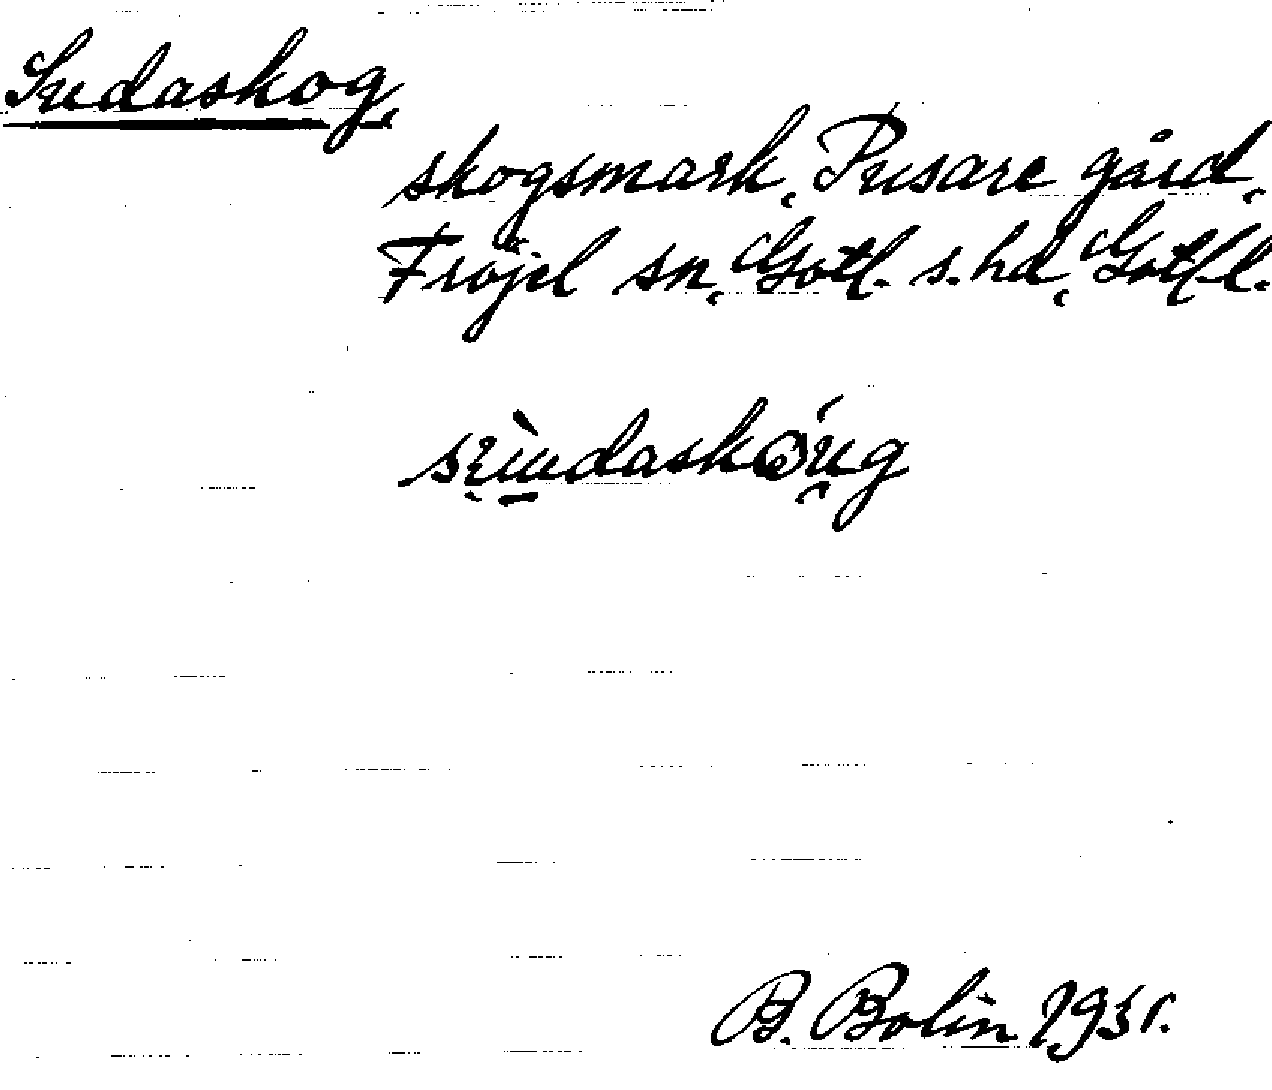 Sudaskog,
skogsmark, Pusare gård,
Fröjel sn, Gotl. s. hd, Gotl l.
B. Bolin 1931.